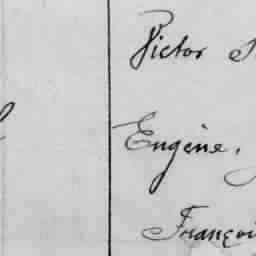 Victor
Eugène.
Françoi